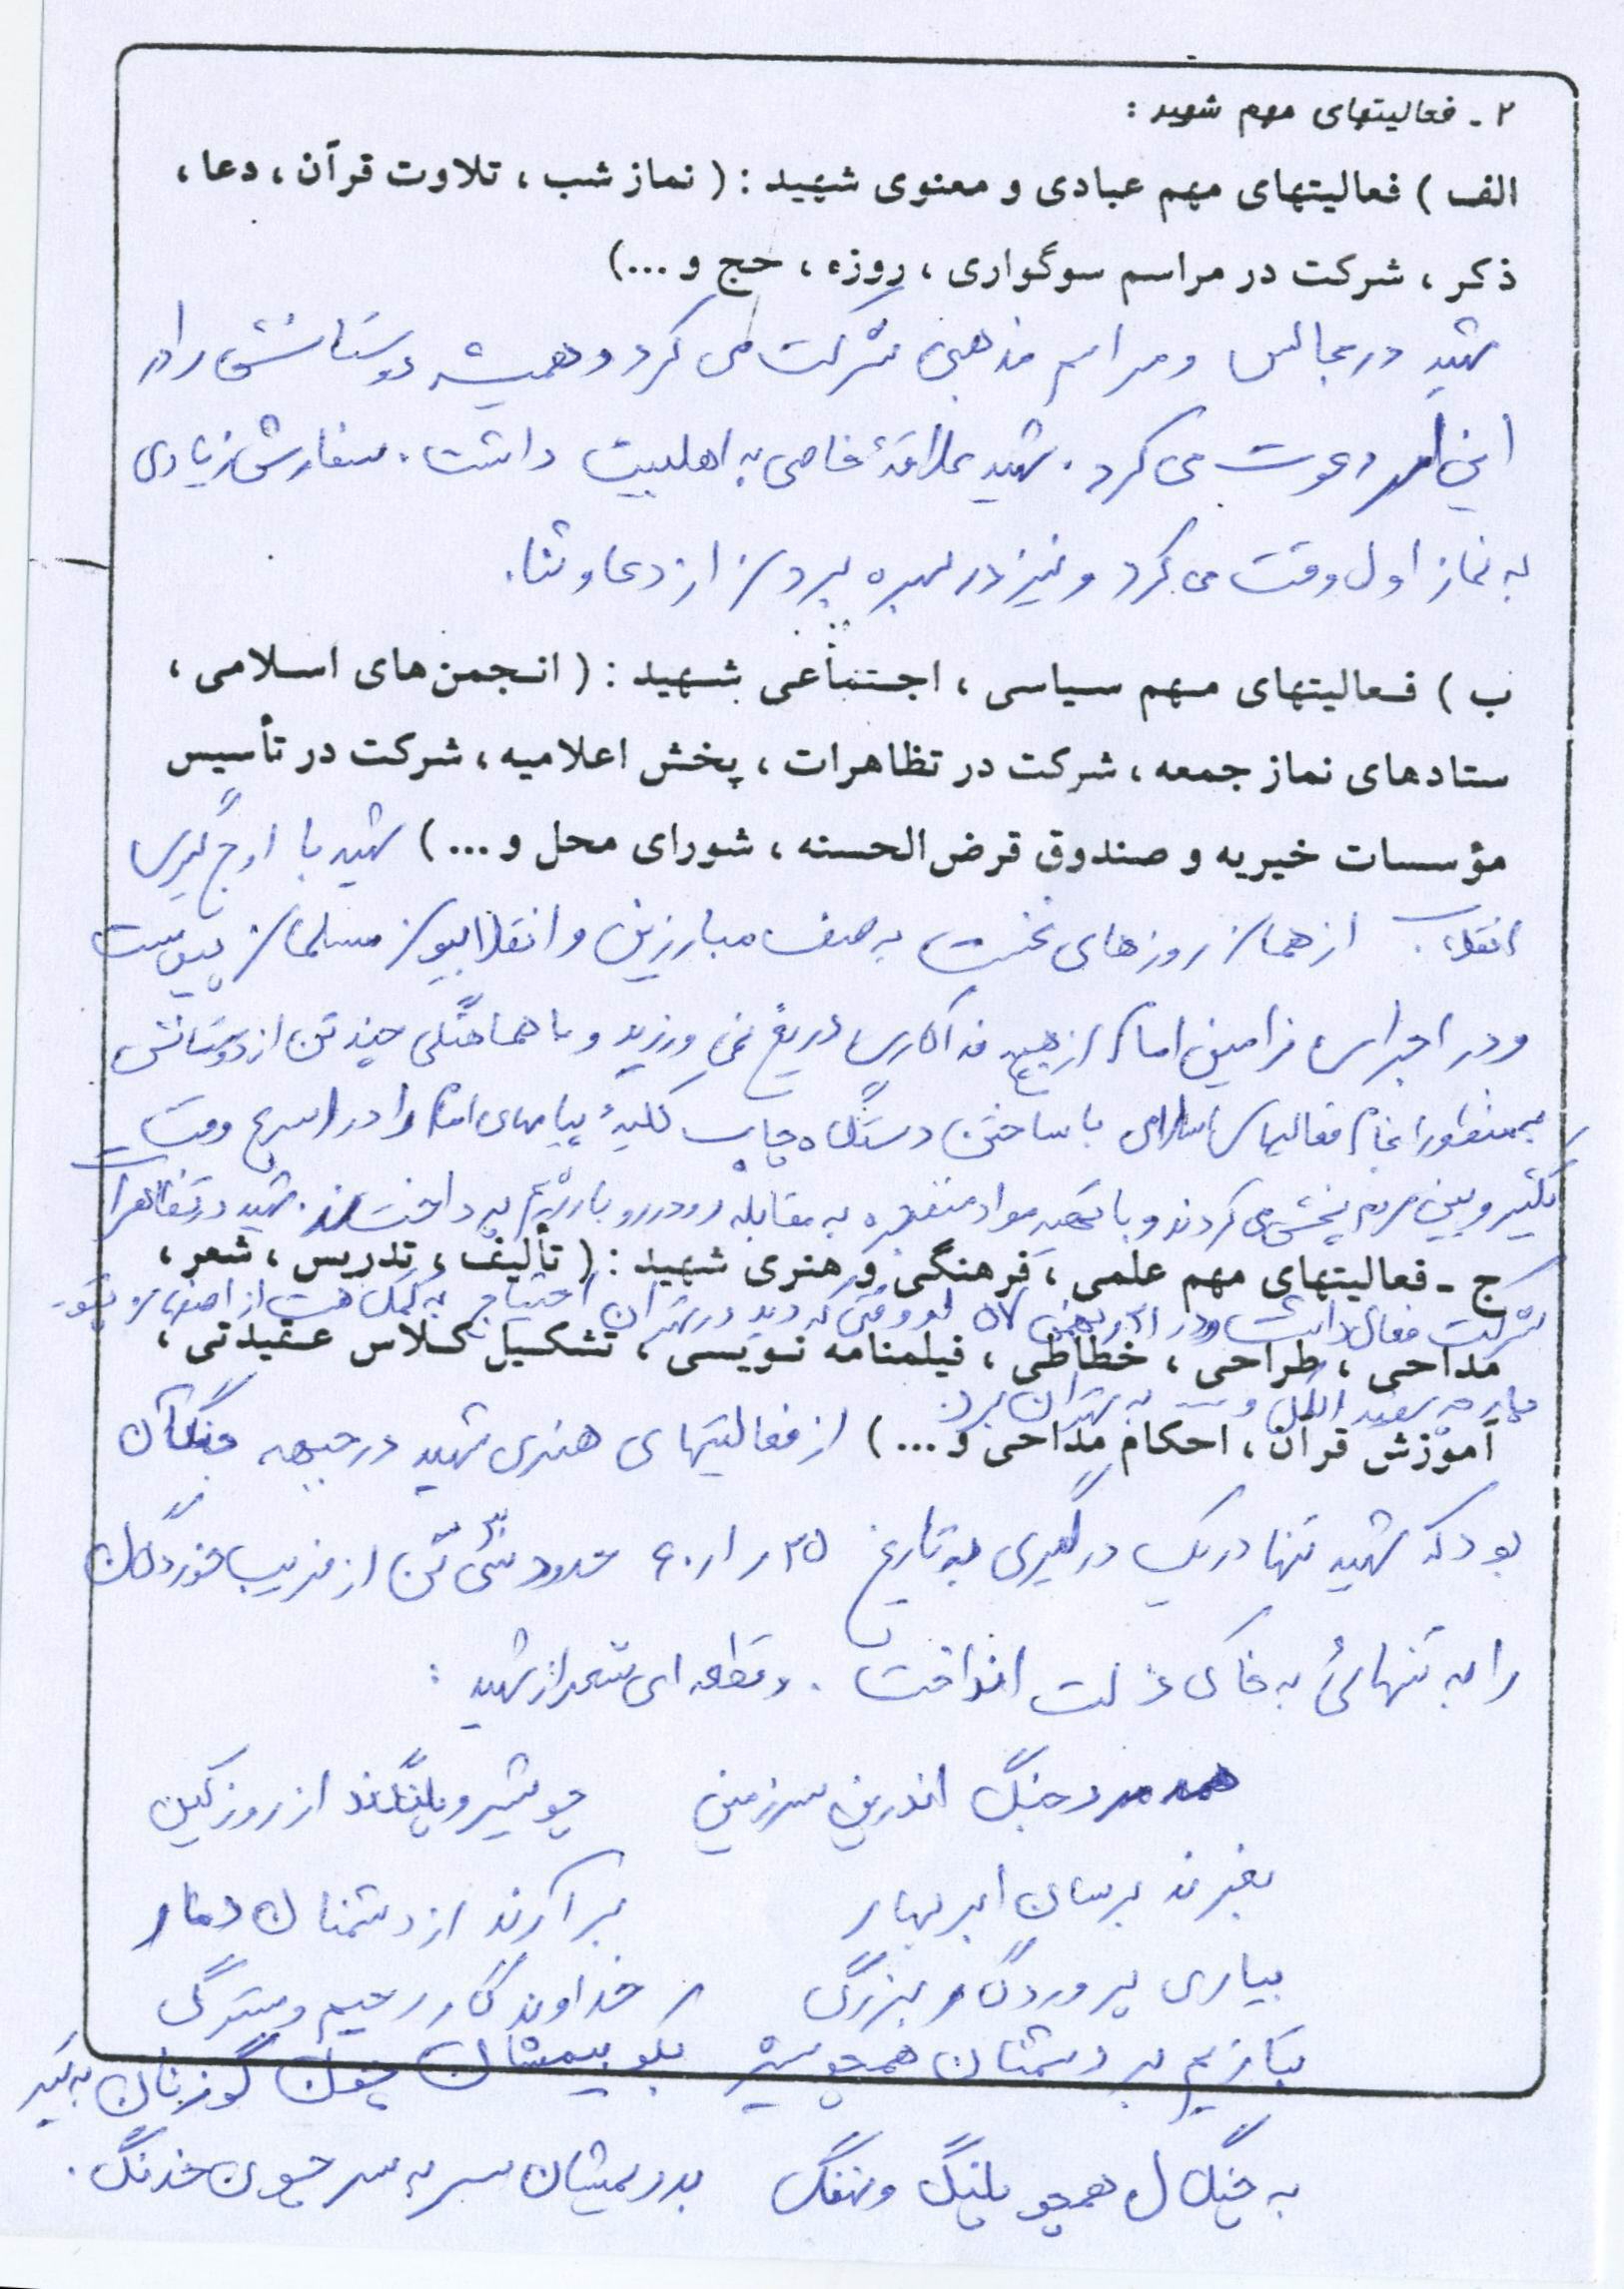 ۲ ـ فعالیتهای مهم شهید :
الف ) فعالیتهای مهم عبادی و معنوی شهید : ( نماز شب ، تلاوت قرآن ، دعا ،
ذکر ، شرکت در مراسم سوگواری ، روزه ، حج و ...)
شهید در مجالس و مراسم مذهبی شرکت می کرد و همیشه دوستانش را در
این امر دعوت می کرد . شهید علاقهٔ خاصی به اهلبیت داشت . سفارش زیادی
به نماز اول وقت می کرد و نیز در بهره بردن از دعا و ثنا .
ب ) فعالیتهای مهم سیاسی ، اجتماعی شهید : ( انجمن‌های اسلامی ،
ستادهای نماز جمعه ، شرکت در تظاهرات ، پخش اعلامیه ، شرکت در تأسیس
مؤسسات خیریه و صندوق قرض‌الحسنه ، شورای محل و ... ) شهید با اوج گیری
انقلاب از همان روزهای نخست به صف مبارزین و انقلابیون مسلمان پیوست
و در اجرای فرامین امام از هیچ فداکاری دریغ نمی ورزید و با هماهنگی چند تن از دوستانش
بمنظور انجام فعالیهای اسلامی با ساختن دستگاه چاپ کلیهٔ پیامهای امام را در اسرع وقت
تکثیر و بین مردم پخش می کردند و با تهیه مواد منفجره به مقابله رودررو با رژیم پرداختند . شهید در تظاهرات
ج ـ فعالیتهای مهم علمی ، فرهنگی و هنری شهید : ( تألیف ، تدریس ، شعر ،
شرکت فعال داشت و در ۲۱ بهمن ۵۷ که دید در تهران احتیاج به کمک هست از اصفهان
مداحی ، طراحی ، خطاطی ، فیلمنامه نویسی ، تشکیل کلاس عقیدتی ،
پارچه سفید الکل و به تهران برد .
آموزش قرآن ، احکام مداحی و ... ) از فعالیتهای هنری شهید در جبهه جنگ آن
بود که شهید تنها در یک درگیری به تاریخ ۲۵ ر ۱ ر ۶۰ حدود سی تن از فریب خوردگان
را به تنهائی به خاک ذلت انداخت . و قطعه ای شعر از شهید :
همه مرد جنگ اندرین سرزمین چو شیر و پلنگند از روز کین
بغرند برسان ابر بهار برآرند از دشمنان دمار
بیاری پروردگار بزرگ خداوندگار رحیم و سترگ
بتازیم بر دشمنان همچو شیر بکوبیمشان چون گوزنان به تیر
به چنگال همچو پلنگ و نهنگ بدریمشان سر به سر چون خدنگ .